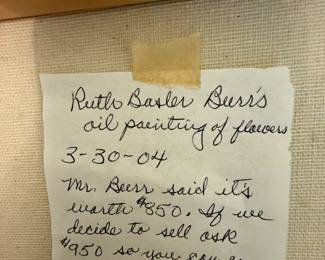 Ruth Basler Burr's
oil painting of flowers
3-30-04
Mr. Burr said it's
worth $850. If we
decide to sell ask
$950 so you can